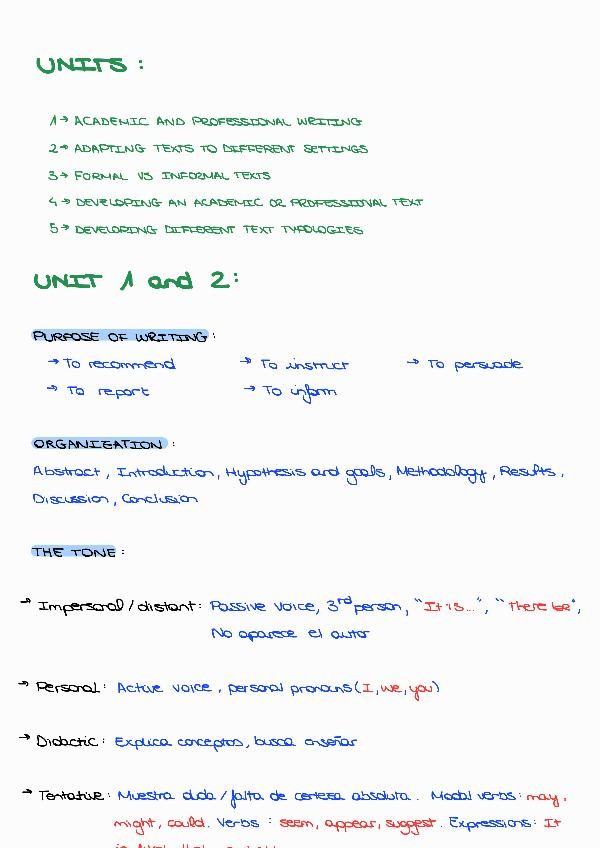 UNITS :
1→ ACADEMIC AND PROFESSIONAL WRITING
2→ ADAPTING TEXTS TO DIFFERENT SETTINGS
3→ FORMAL VS INFORMAL TEXTS
4→ DEVELOPING AN ACADEMIC OR PROFESSIONAL TEXT
5→ DEVELOPING DIFFERENT TEXT TYPOLOGIES
UNIT 1 and 2:
PURPOSE OF WRITING:
→ To recommend → To instruct → To persuade
→ To report → To inform
ORGANIZATION :
Abstract, Introduction, Hypothesis and goals, Methodology, Results,
Discussion, Conclusion
THE TONE :
→ Impersonal / distant: Passive voice, 3rd person, "It is...", "There be",
No aparece el autor
→ Personal: Active voice, personal pronouns (I, we, you)
→ Didactic: Explica conceptos, busca enseñar
→ Tentative: Muestra duda / falta de certeza absoluta. Modal verbs: may,
might, could. Verbs : seem, appear, suggest. Expressions: It